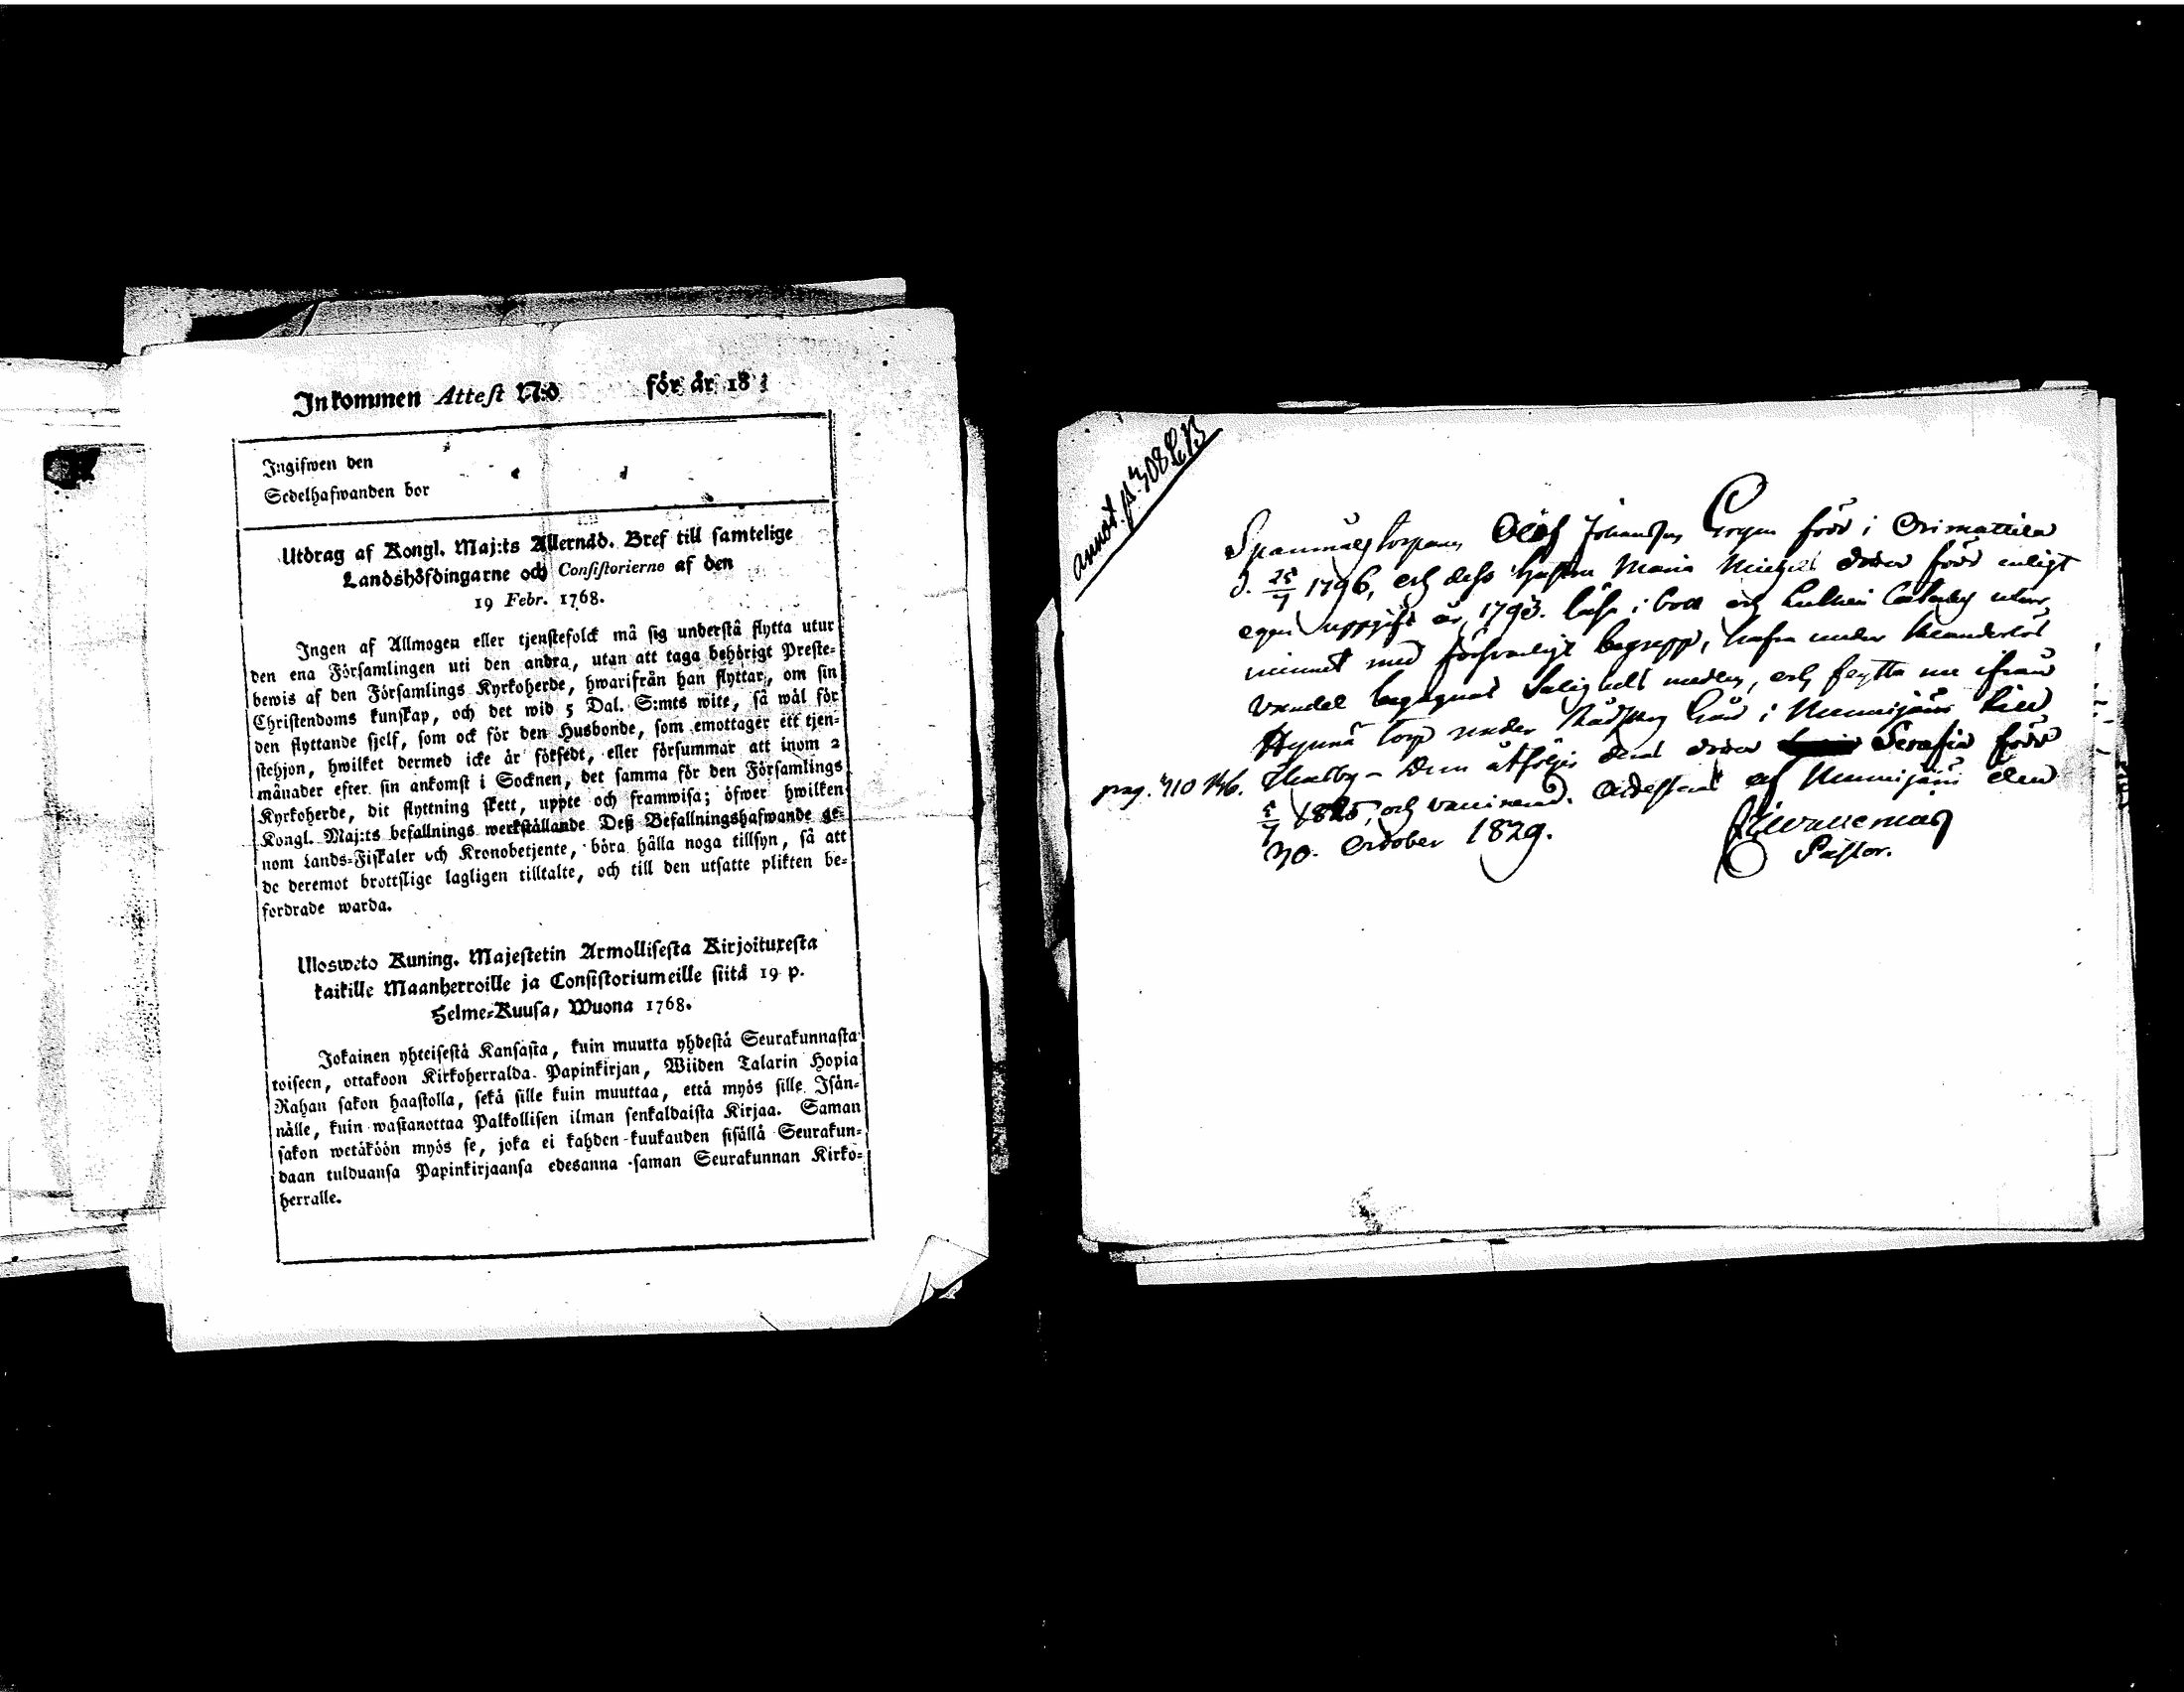 Inkommen Attest N:o för år 18
Ingifwen den
Sedelhafwanden bor
Utdrag af Kongl. Maj:ts Allernåd. Bref till samtelige
Landshöfdingarne och Consistorierne af den
19 Febr. 1768.
Ingen af Allmogen eller tjenstefolck må sig understå flytta utur
den ena Församlingen uti den andra, utan att taga behörigt Preste-
bewis af den Församlings Kyrkoherde, hwarifrån han flyttar, om sin
Christendoms kunskap, och det wid 5 Dal. S:mts wite, så wäl för
den flyttande sjelf, som ock för den Husbonde, som emottager ett tjen-
stehjon, hwilket dermed icke är försedt, eller försummar att inom 2
månader efter sin ankomst i Socknen, det samma för den Församlings
Kyrkoherde, dit flyttning skett, uppte och framwisa; öfwer hwilken
Kongl. Maj:ts befallnings werkställande Deß Befallningshafwande ge-
nom Lands-Fiskaler och Kronobetjente, böra hålla noga tillsyn, så att
de deremot brottslige lagligen tilltalte, och till den utsatte plikten be-
fordrade warda.
Ulosweto Kuning. Majestetin Armollisesta Kirjoituxesta
kaikille Maanherroille ja Consistoriumeille siitä 19 p.
Helme-Kuusa, Wuona 1768.
Jokainen yhteisestä Kansasta, kuin muutta yhdestä Seurakunnasta
toiseen, ottakoon Kirkoherralda Papinkirjan, Wiiden Talarin Hopia
Rahan sakon haastolla, sekä sille kuin muuttaa, että myös sille Isän-
nälle, kuin wastanottaa Palkollisen ilman senkaldaista Kirjaa. Saman
sakon wetäköön myös se, joka ei kahden kuukauden sisällä Seurakun-
daan tulduansa Papinkirjaansa edesanna saman Seurakunnan Kirko-
herralle.
annot. p. 308
Olof Johansson född i Orimattila
d. 25/7 1796, och dess hustru Maria Michels doter född enligt
egen uppgift år 1793. läse i bok och Lutheri Catches utur
minnet med förswarligt begrepp, hafva under klanderlös
vandel begagnat Salighets medlen, och flytta nu ifrån
torp under gård i Nummijärvi till
pag. 310 Dem åtföljer deras doter Serafia född
5/7 1825, och vaccinerad. af Nummijärvi den
30. October 1829.
Pastor.